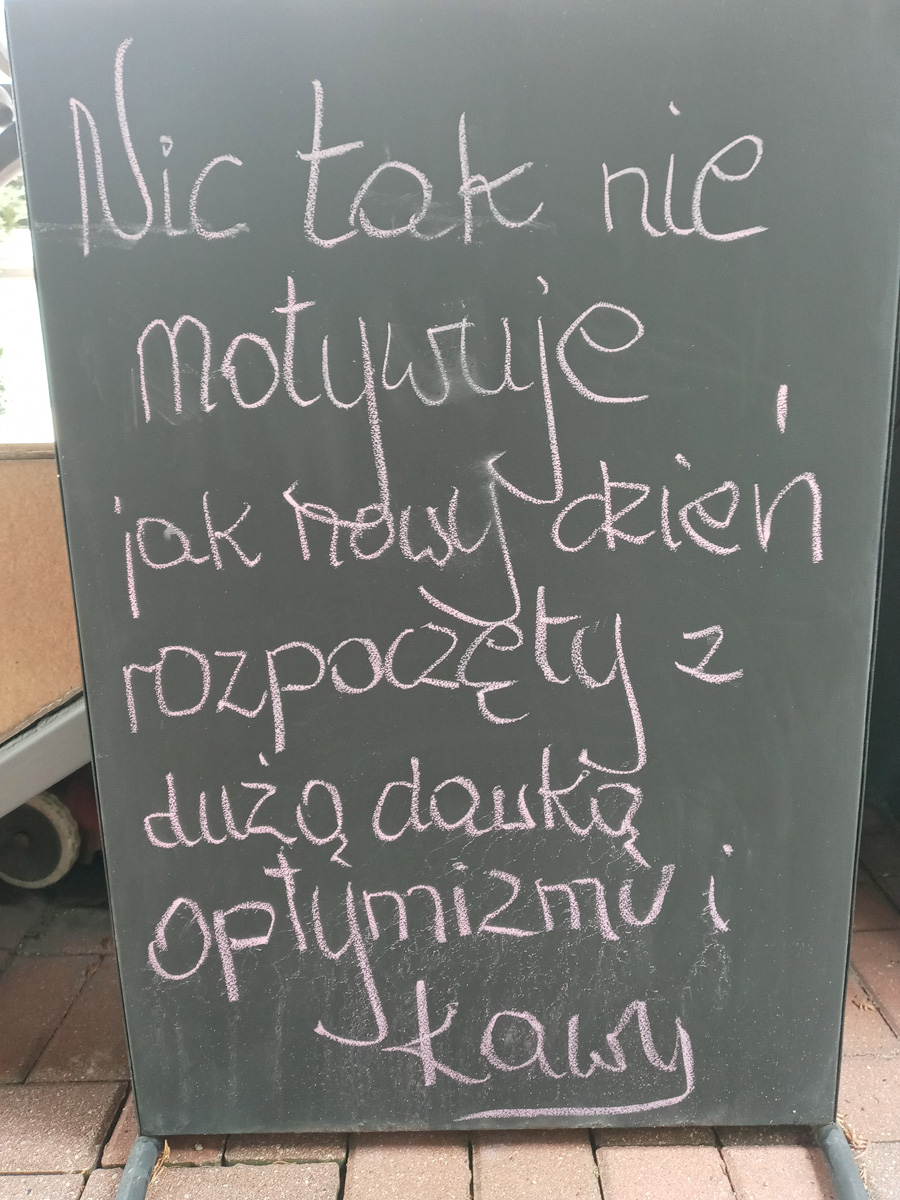 Nic tak nie
motywuje
jak nowy dzień
rozpoczęty z
dużą dawką
optymizmu i
kawy